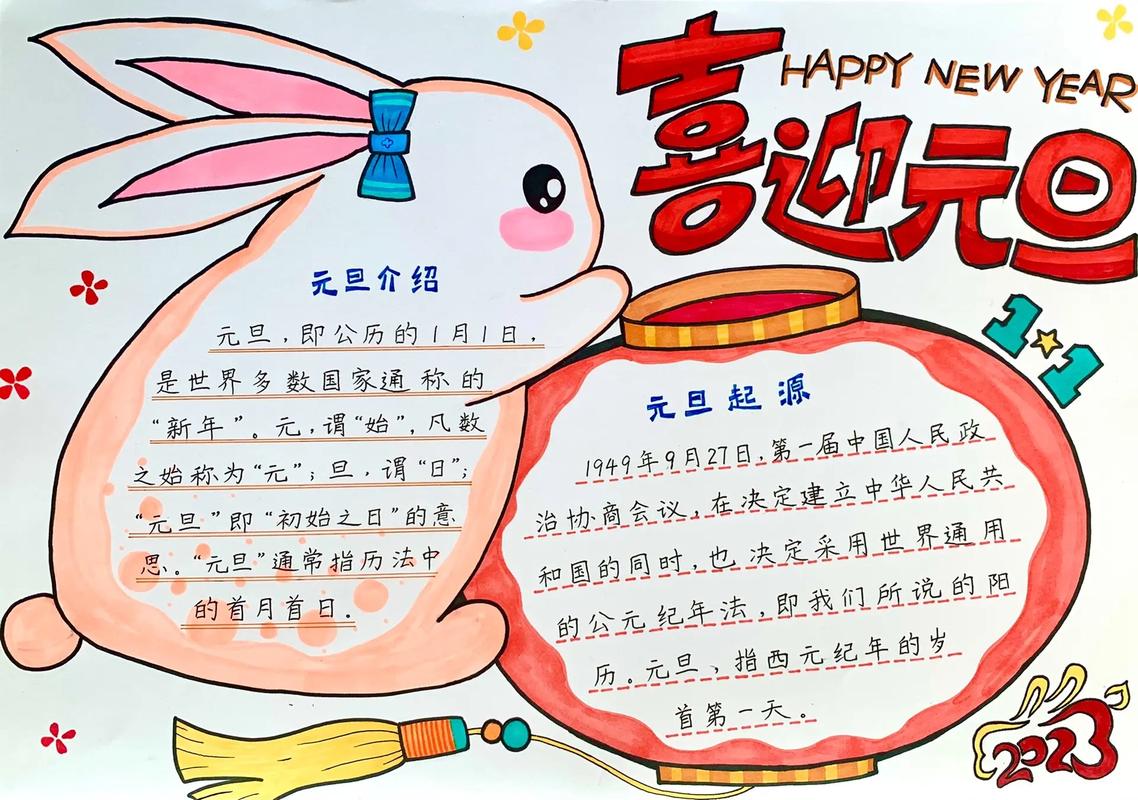 喜迎元旦
HAPPY NEW YEAR
1★1
元旦介绍
元旦，即公历的1月1日，
是世界多数国家通称的
“新年”。元，谓“始”，凡数
之始称为“元”；旦，谓“日”；
“元旦”即“初始之日”的意
思。“元旦”通常指历法中
的首月首日.
元旦起源
1949年9月27日，第一届中国人民政
治协商会议，在决定建立中华人民共
和国的同时，也决定采用世界通用
的公元纪年法，即我们所说的阳
历。元旦、指西元纪年的岁
首第一天。
2023